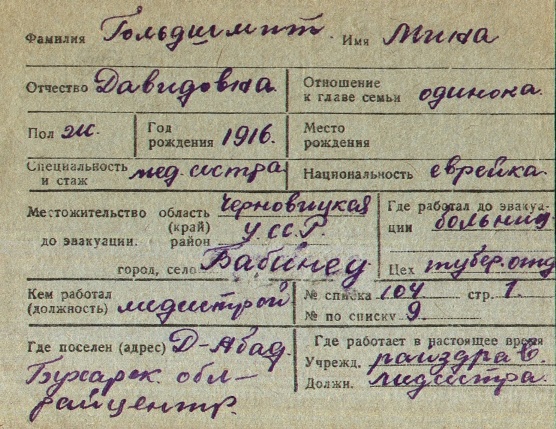 Фамилия Гольдшмит Имя Мина
Отчество Давидовна Отношение к главе семьи одинока.
Пол ж. Год рождения 1916. Место рождения
Специальность и стаж мед. сестра Национальность еврейка.
Местожительство до эвакуации. область (край) Черновицкая
район УССР.
город, село Бабинец
Где работал до эвакуации больниц
Цех тубер. отд
Кем работал (должность) медсестрой № списка 104 стр. 1.
№ по списку 9.
Где поселен (адрес) Д-Абад.
Бухарск. обл-
райцентр.
Где работает в настоящее время
Учрежд. райздрав.
Должн. медсестра.